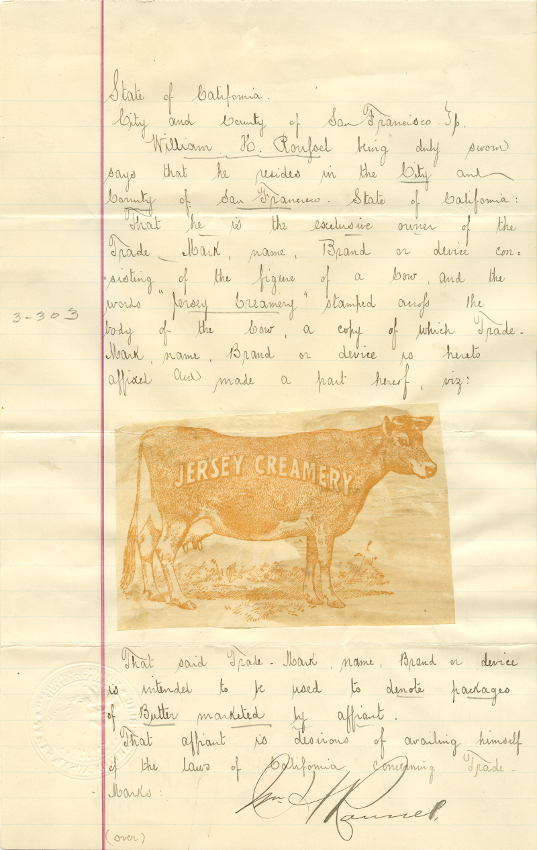 State of California.
City and County of San Francisco.
William H. being duly sworn
says that he resides in the City and
County of San Francisco. State of California:
That he is the exclusive owner of the
Trade-Mark, name, Brand or device con:
sisting of the figure of a Cow, and the
words "Jersey Creamery" stamped across the
3-303
body of the Cow, a copy of which Trade-
Mark, name, Brand or device is hereto
affixed and made a part hereof, viz:
JERSEY CREAMERY
That said Trade-Mark, name, Brand or device
is intended to be used to denote packages
of Butter marketed by affiant.
That affiant is desirous of availing himself
of the laws of California concerning Trade-
Marks:
Wm H
(over)